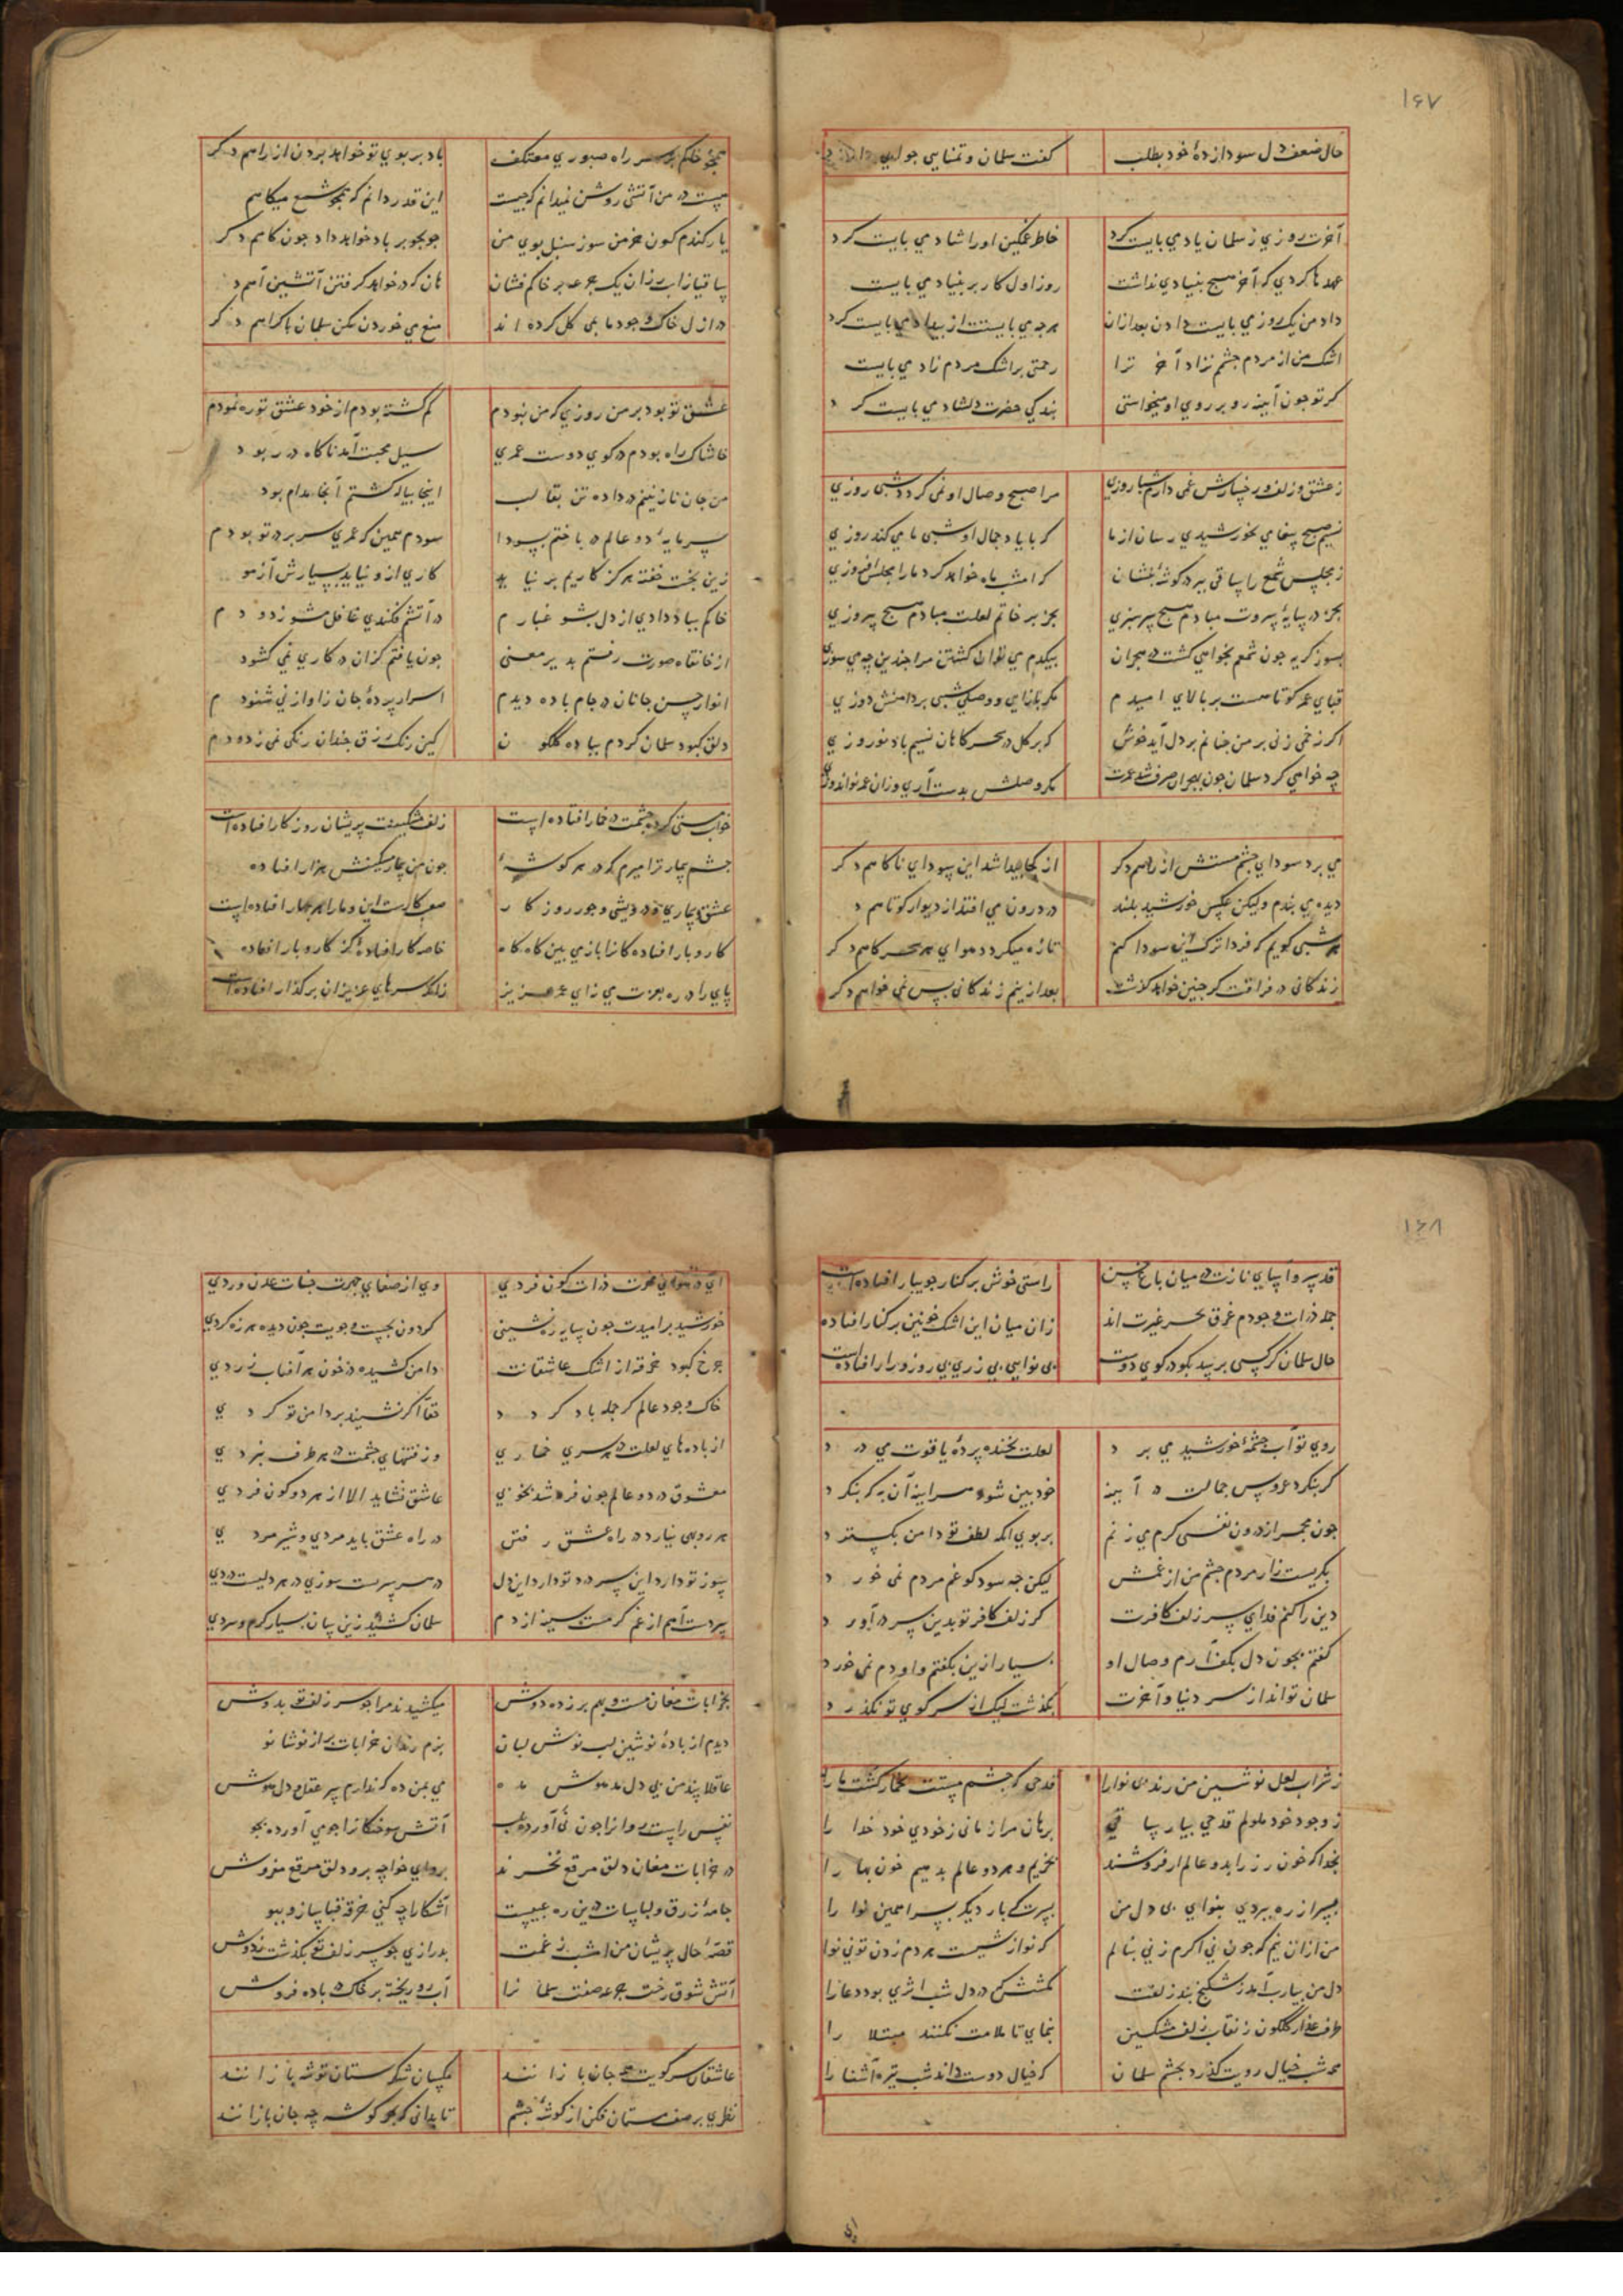 ۱۶۷
حال ضعف دل سودازدهٔ خود بطلب کفت سلمان و تمنایی جوابی دارد
آخرت روزی ز سلمان یاد می بایت کرد خاطر غمکین او را شاد می بایت کرد
عهدها کردی که آخر هیچ بنیادی نداشت روز اول کار بر بنیاد می بایت
داد من یک روز می بایت دادن بعد ازان هرچه می بایست از بیداد می بایت کرد
اشک من از مردم چشم نزاد آخر ترا رحمتی بر اشک مردم زاد می بایت
کر تو جون آیینه رو بر روی او میخواستی بندکی حضرت دلشاد می بایت کرد
ز عشق و زلف و رخسارش غمی دارم شبا روزی مرا صبح وصال او نمی کردد شبی روزی
نسیم صبح پیغامی بخورشیدی رسان از ما که با یاد جمال او شبی ما می کند روزی
ز مجلس شمع را ساقی ببر در کوشهٔ بنشان که امشب ماه خواهد کرد ما را مجلس افروزی
بجز در سایهٔ سروت مبادم هیچ سرسبزی بجز بر خاتم لعلت مبادم هیچ پیروزی
بسوز کریه جون شمعم بخواهی کشت در هجران بیکدم می توان کشتن مرا جندین چه می سوزی
قبای عمر کوتاهست بر بالای امیدم مکر بازایی و وصلی شبی بر دامنش دوزی
اکر زخمی زنی بر من جنانم بر دل آید خوش که بر کل در سحرکاهان نسیم باد نوروزی
چه خواهی کرد سلمان جون بهجران صرف شد عمرت مکر وصلش بدست آری وزان عمر نواندوزی
می برد سودای چشم مستش از راهم دکر از کجا پیدا شد این سودای ناکاهم دکر
دیده می بندم ولیکن عکس خورشید بلند در درون می افتد از دیوار کوتاهم د
هر شبی کویم که فردا ترک این سودا کنم تازه میکردد هوای هر سحرکاهم دکر
زندکانی در فراقت کر جنین خواهد کذشت بعد ازینم زندکانی بس نمی خواهم دکر
همجو خاکم بر سر راه صبوری معتکف باد بر بوی تو خواهد بردن از راهم دکر
هست در من آتشی روشن نمیدانم که جیست این قدر دانم که همجو شمع میکاهم
یار کندم کون خرمن سوز سنبل بوی من جو بجو بر باد خواهد داد جون کاهم دکر
ساقیا زاب رزان یک جرعه بر خاکم فشان هان که در خواهد کرفتن آتشین آهم د
در ازل خاک وجود ما بمی کل کرده اند منع می خوردن مکن سلمان باکراهم دکر
عشق تو بود بر من روزی که من نبودم کم کشته بودم از خود عشق تو ره نمودم
خاشاک راه بودم در کوی دوست عمری سیل محبت آمد ناکاه در ربود
من جان نازنینم در داده تن بقالب اینجا پیاله کشتم آنجا مدام بود
سرمایهٔ دو عالم درباختم بسودا سودم همین که عمری سر بر در تو بودم
زین بخت خفته هرکز کاریم بر نیاید کاری ازو نیاید بسیارش آزمو
خاکم بباد دادی از دل بشو غبارم در آتشم فکندی غافل مشو ز دودم
از خانقاه صورت رفتم بدیر معنی جون یافتم کزان در کاری نمی کشود
انوار حسن جانان در جام باده دیدم اسرار پردهٔ جان زاواز نی شنودم
دلق کبود سلمان کردم بباده کلکون کین رنک زرق جندان رنکی نمی زدودم
خواب مستی کرده جشمت در خمار افتاده است زلف مشکینت پریشان روزکار افتاده است
جشم بیمار ترا میرم که در هر کوشهٔ جون من بیمار مسکینش هزار افتاده
عشق و بیماری و درویشی و جور روزکار صعب کاریست این و ما را هر چهار افتاده است
کار و بار افتادکانرا باز می بین کاه کاه خاصه کار افتادهٔ کز کار و بار افتاده
پای را در ره بعزت می زای عمر عزیز زانکه سرهای عزیزان بر کذار افتاده است
۱۶۸
قد سرو آسای نازت در میان باغ حسن راستی خوش بر کنار جویبار افتاده است
جمله ذرات وجودم غرق بحر غیرت اند زان میان این اشک خونین بر کنار افتاده
حال سلمان کر کسی پرسد بکو در کوی دوست بی نوایی بی زری بی روز و زار افتاده است
روی تو آب چشمهٔ خورشید می برد لعلت بخنده پردهٔ یاقوت می درد
کر بنکرد عروس جمالت در آینه خودبین شود هر آینه آن به که ننکرد
جون مجمر از درون نفسی کرم می زنم بر بوی انکه لطف تو دامن بکسترد
بکریست زار مردم جشم من از غمش لیکن جه سود کو غم مردم نمی خورد
دین را کنم فدای سر زلف کافرت کر زلف کافر تو بدین سر در آورد
کفتم بخون دل بکف آرم وصال او بسیار ازین بکفتم و او دم نمی خورد
سلمان تواند از سر دنیا و آخرت بکذشت لیک از سر کوی تو نکذرد
ز شراب لعل نوشین من رند بی نوا را قدحی که جشم مستت بخمار کشت ما را
ز وجود خود ملولم قدحی بیار ساقی برهان مرا زمانی ز خودی خود خدا را
بخدا که خون رز را بدو عالم ار فروشند بخریم و هر دو عالم بدهیم خون بها را
پسرا ز ره ببردی بنوای نی دل من بسرت که بار دیکر بسرا همین نوا را
من از آن نیم که جون نی اکرم زنی بنالم که نوازشیست هر دم زدن تو نی نوا
دل من بیارب آمد ز شکنج بند زلفت کشش که در دل شب اثری بود دعا را
طرف عذار کلکون ز نقاب زلف مشکین بنمای تا ملامت نکنند مبتلا را
همه شب خیال رویت کذرد بچشم سلمان که خیال دوست داند شب تیره آشنا را
ای در هوای مهرت ذرات کون فردی وی از صفای جهرت جنات عدن وردی
خورشید بر امیدت جون سایه ره نشینی کردون بجست و جویت جون دیده هرزه کردی
جرخ کبود خرقه از اشک عاشقانت دامن کشیده در خون هر آفتاب زردی
خاک وجود عالم کر جمله باد کردد حقا اکر نشیند بر دامن تو کردی
از باده های لعلت در هر سری خماری وز فتنهای جشمت در هر طرف نبردی
معشوق در دو عالم جون فرد شد بخوبی عاشق نشاید الا از هر دو کون فردی
هر روبهی نیارد در راه عشق رفتن در راه عشق باید مردی و شیر مردی
سوز تو دارد این سر درد تو دارد این دل در هر سریست سوزی در هر دلیست دردی
سردست آهم از غم کرمست سینه از دم سلمان کشید زین سان بسیار کرم و سردی
بخرابات مغان مست و بهم بر زده دوش میکشیدند مرا جو سر زلف تو بدوش
دیدم از بادهٔ نوشین لب نوش لبان بزم رندان خرابات پر از نوشانو
عاقلا پند من بی دل مدهوش مده می بمن ده که ندارم سر عقل و دل و هوش
نفس راست روانرا جون نی آورده بلب آتش سوختکانرا جو می آورده بجو
در خرابات مغان دلق مرقع نخرند برو ای خواجه برو دلق مرقع مفروش
جامهٔ زرق و لباسات درین ره عیبست آشکارا چه کنی خرقه قبا ساز و بپو
قصهٔ حال پریشان من امشب ز غمت بدرازی جو سر زلف تو بکذشت ز دوش
آتش شوق رخت جرعه صفت سلمانرا آب رو ریخته بر خاک در باده فروش
عاشقان سر کویت همه جان بازانند مکسان شکرستان تو شهبازانند
نظری بر صف مستان فکن از کوشهٔ جشم تا بدانی که بهر کوشه چه جان بازانند